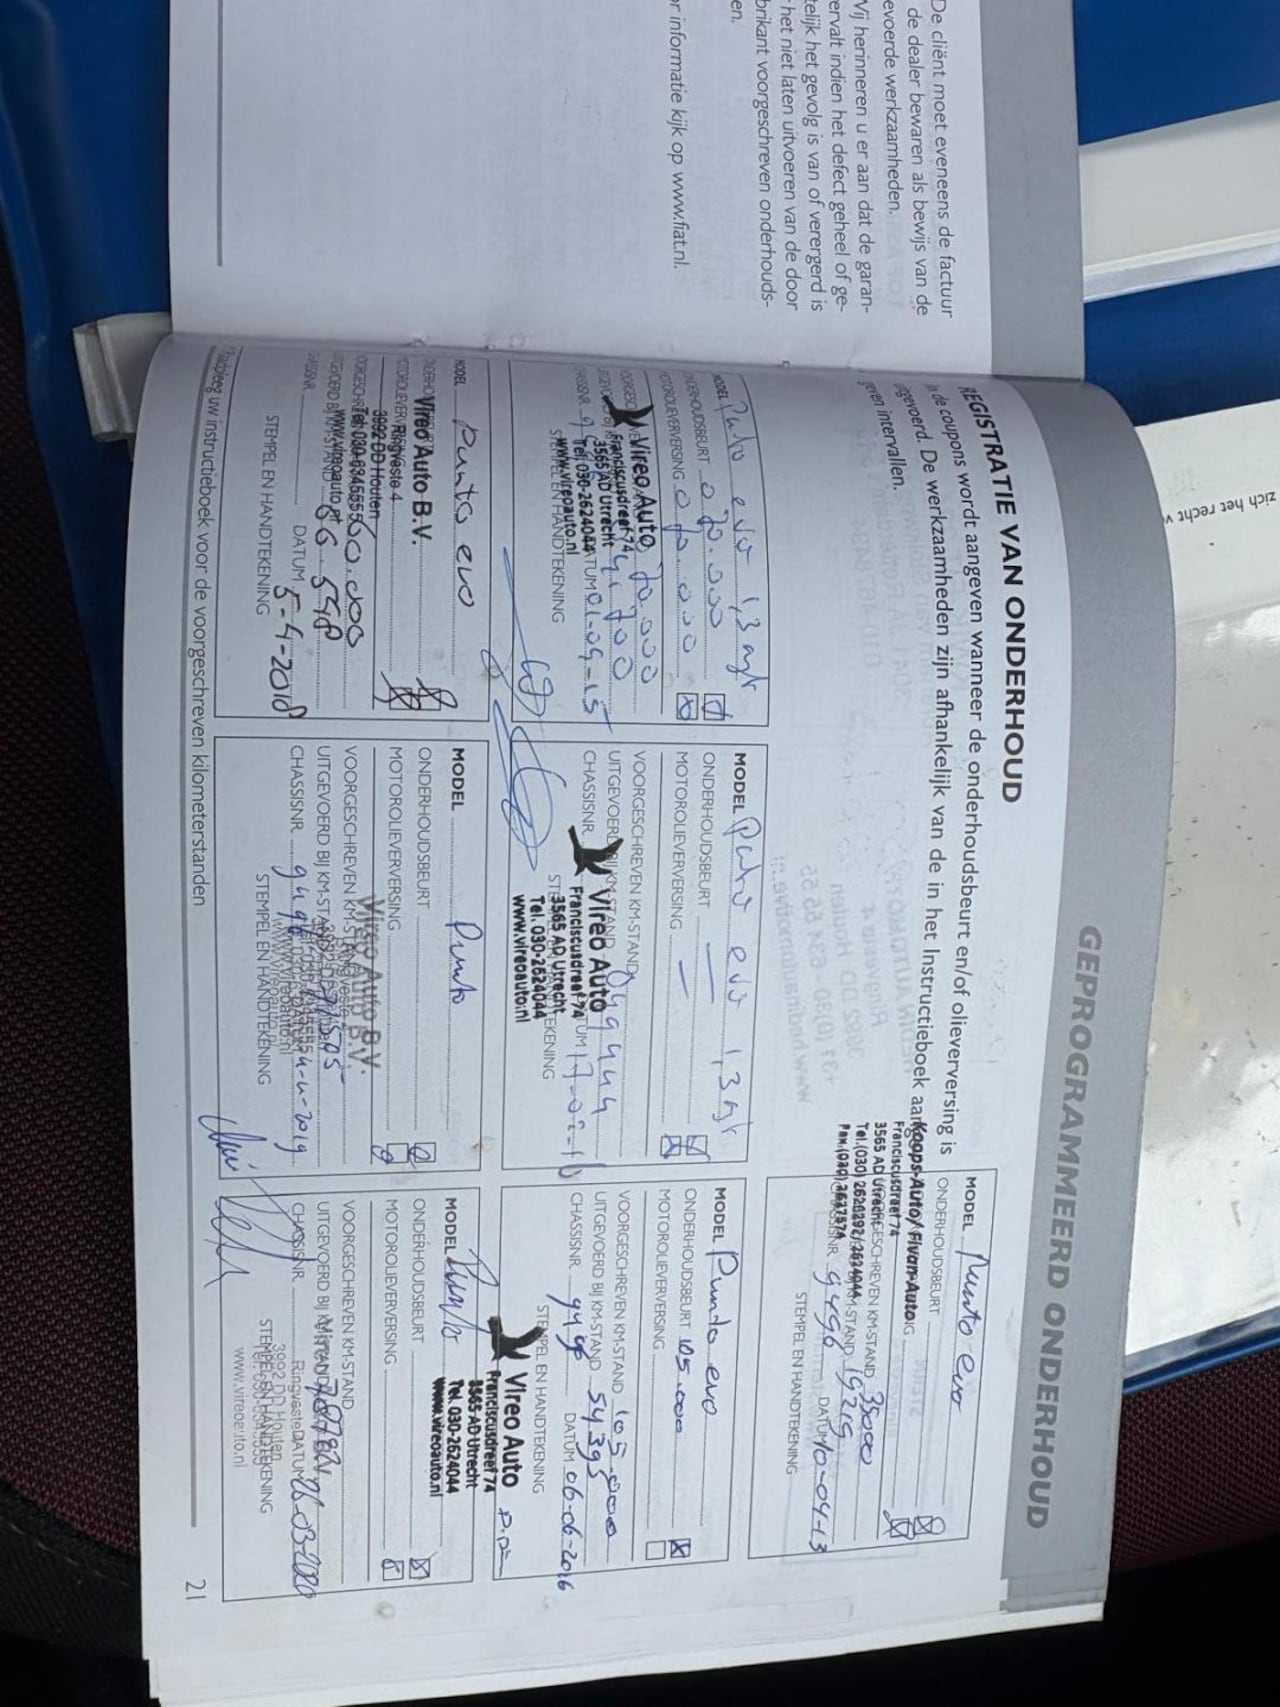 De cliënt moet eveneens de factuur
de dealer bewaren als bewijs van de
evoerde werkzaamheden.
Wij herinneren u er aan dat de garan-
ervalt indien het defect geheel of ge-
telijk het gevolg is van of verergerd is
het niet laten uitvoeren van de door
brikant voorgeschreven onderhouds-
en.
r informatie kijk op www.fiat.nl.
zich het recht
GEPROGRAMMEERD ONDERHOUD
REGISTRATIE VAN ONDERHOUD
In de coupons wordt aangeven wanneer de onderhoudsbeurt en/of olieverversing is
uitgevoerd. De werkzaamheden zijn afhankelijk van de in het Instructieboek aan
geven intervallen.
MODEL Punto evo
ONDERHOUDSBEURT
Koops Auto/ Fivan Auto
Franciscusdreef 74
3565 AD Utrecht
VOORGESCHREVEN KM-STAND 35000
Tel.(030) 2620292/2624044
KM-STAND 19219
Fax.(030) 2627574
CHASSISNR. 9496 DATUM 10-04-13
STEMPEL EN HANDTEKENING
MODEL Punto evo 1,3 mjt
ONDERHOUDSBEURT 070.000
MOTOROLIEVERVERSING 070.000
Vireo Auto 70.000
Franciscusdreef 74
3565 AD Utrecht
Tel. 030-2624044
www.vireoauto.nl
STEMPEL EN HANDTEKENING
MODEL Punto evo 1,3 mjt
ONDERHOUDSBEURT —
MOTOROLIEVERVERSING —
VOORGESCHREVEN KM-STAND
UITGEVOERD BIJ KM-STAND
CHASSISNR.
Vireo Auto
Franciscusdreef 74
3565 AD Utrecht
Tel. 030-2624044
www.vireoauto.nl
MODEL Punto evo
ONDERHOUDSBEURT 105.000
MOTOROLIEVERVERSING
VOORGESCHREVEN KM-STAND 105.000
UITGEVOERD BIJ KM-STAND 54395
CHASSISNR. DATUM 06-06-2016
STEMPEL EN HANDTEKENING
Vireo Auto
Franciscusdreef 74
3565 AD Utrecht
Tel. 030-2624044
www.vireoauto.nl
MODEL punto evo
Vireo Auto B.V.
Ringveste 4
3992 DD Houten
Tel: 030-6345555
www.vireoauto.nl
66.548
CHASSISNR. DATUM 5-4-2018
STEMPEL EN HANDTEKENING
MODEL Punto
ONDERHOUDSBEURT
MOTOROLIEVERVERSING
Vireo Auto B.V.
VOORGESCHREVEN KM-STAND
UITGEVOERD BIJ KM-STAND
CHASSISNR. 9496
STEMPEL EN HANDTEKENING
MODEL Punto
ONDERHOUDSBEURT
MOTOROLIEVERVERSING
VOORGESCHREVEN KM-STAND
UITGEVOERD BIJ KM-STAND
CHASSISNR. Ringveste DATUM 26-03-2020
3992 DD Houten
STEMPEL EN HANDTEKENING
www.vireoauto.nl
Raadpleeg uw instructieboek voor de voorgeschreven kilometerstanden
21